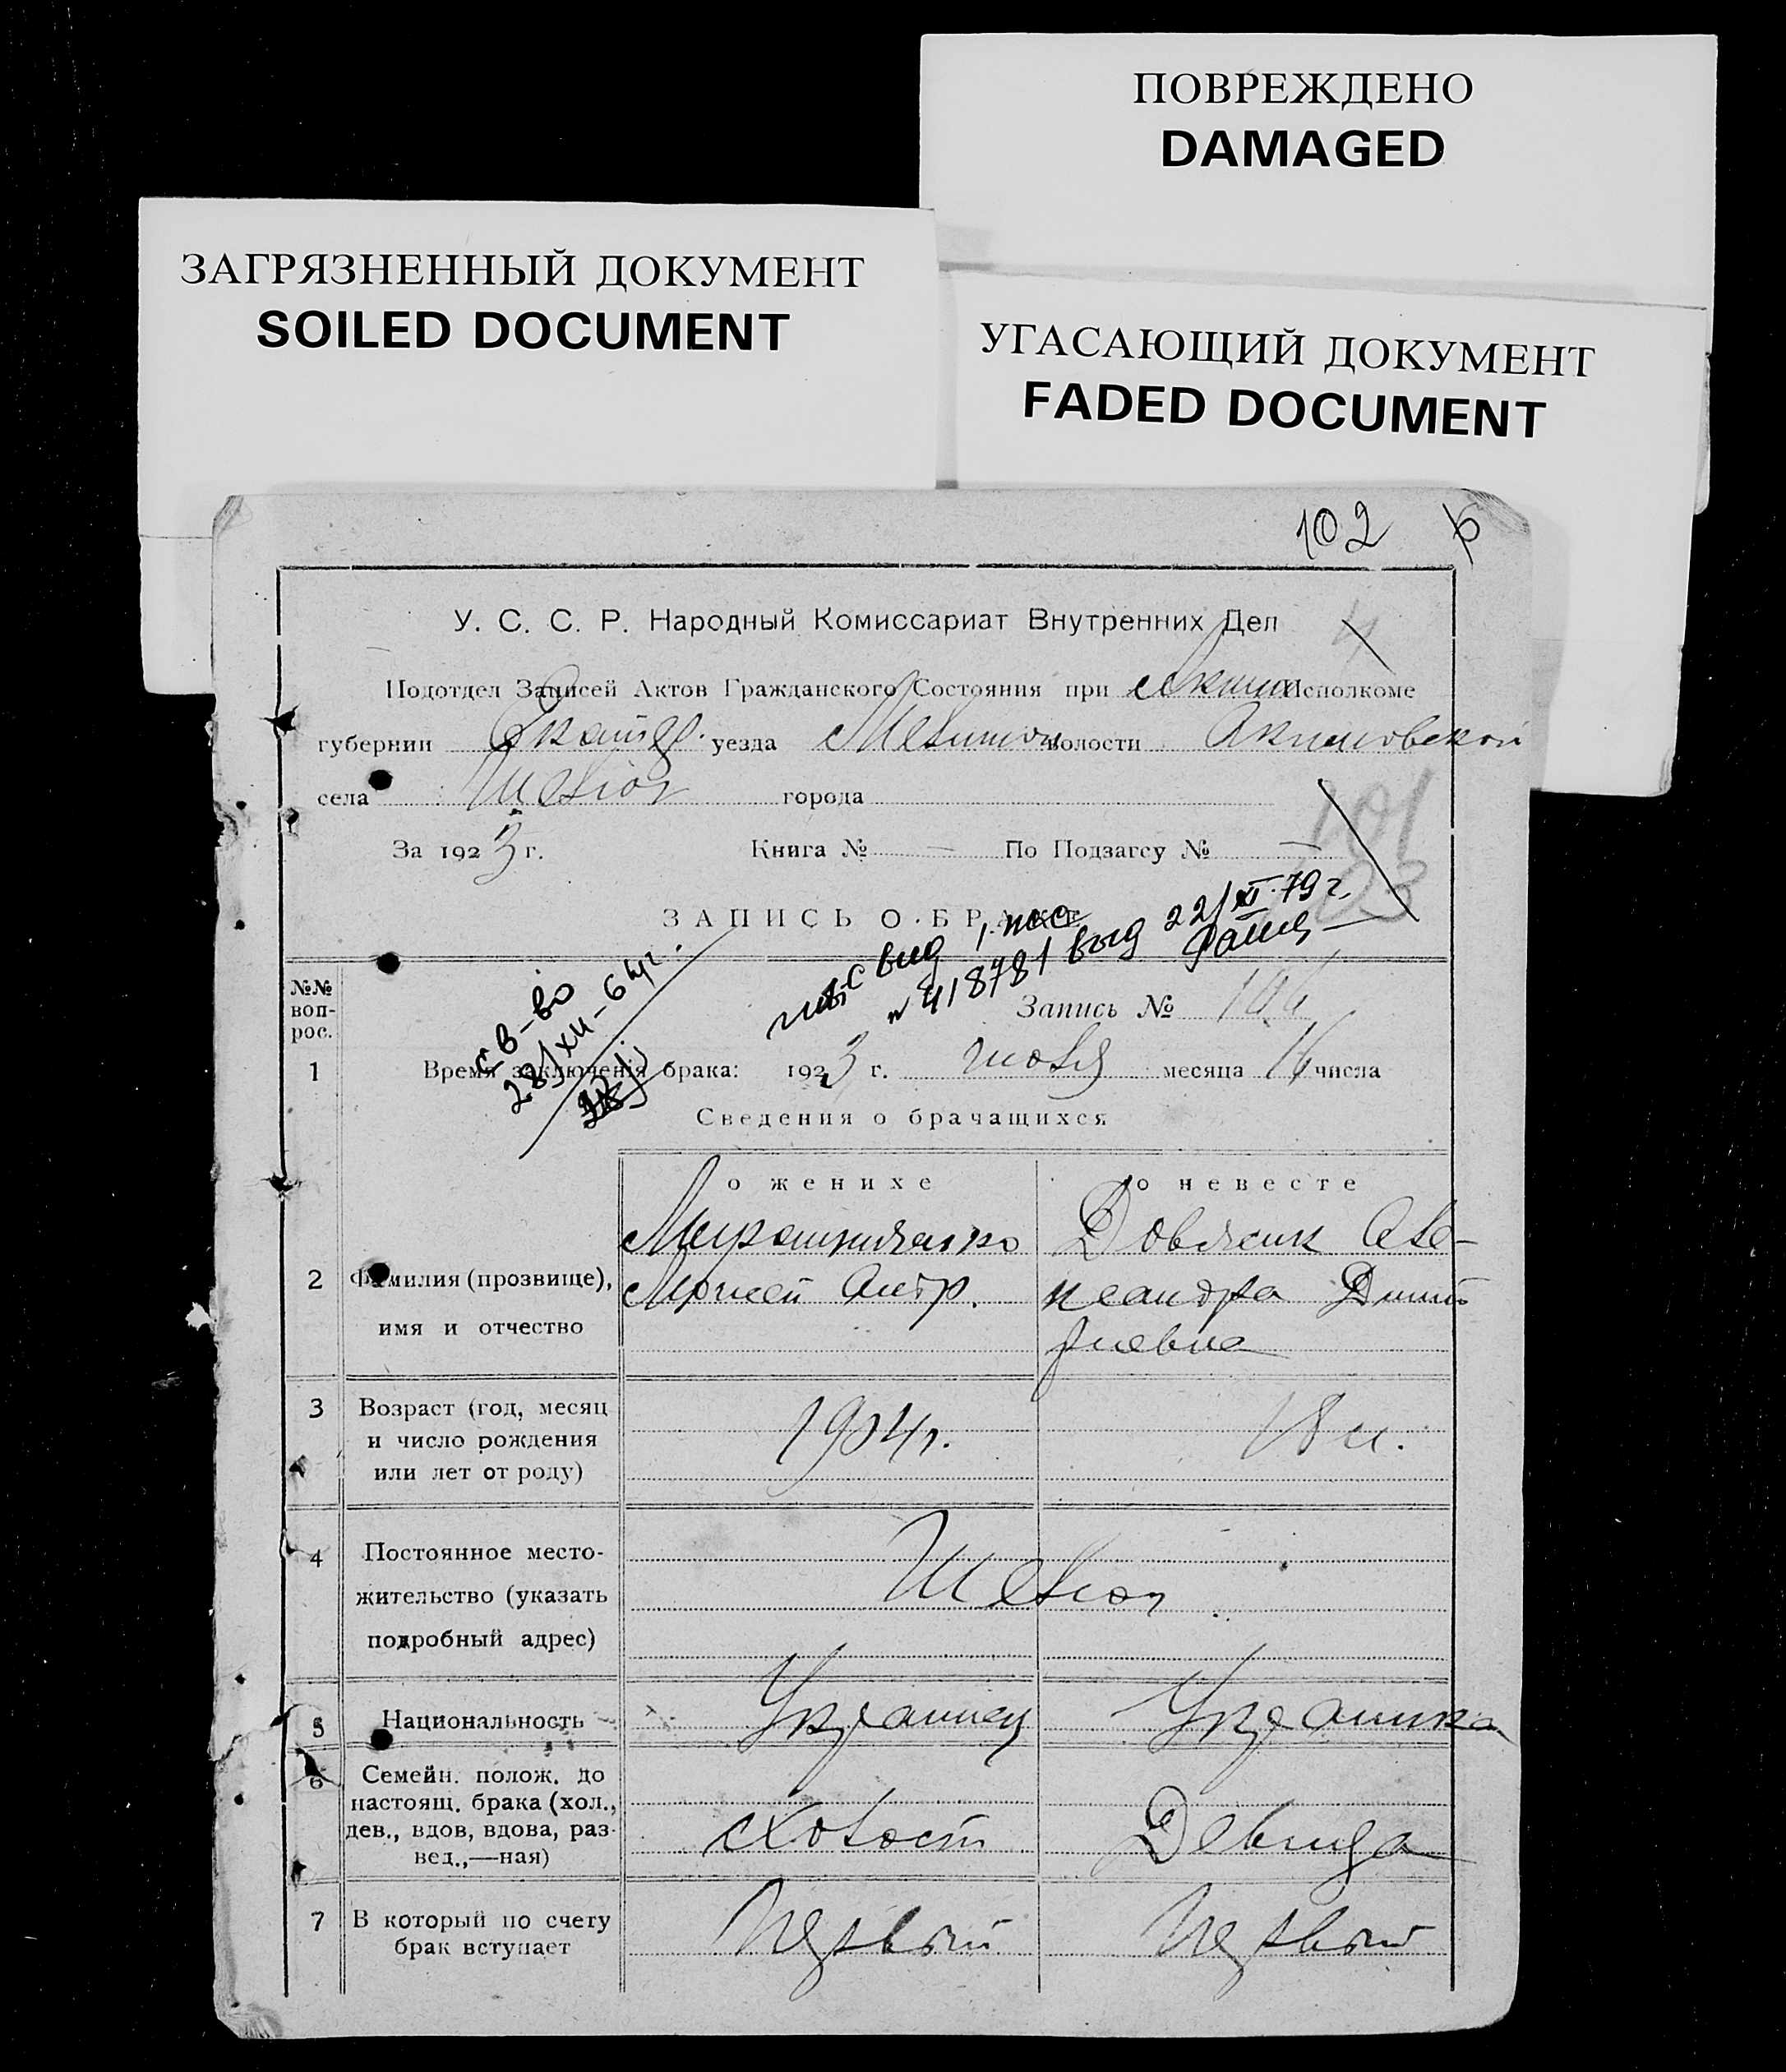 ПОВРЕЖДЕНО
DAMAGED
ЗАГРЯЗНЕННЫЙ ДОКУМЕНТ
SOILED DOCUMENT
УГАСАЮЩИЙ ДОКУМЕНТ
FADED DOCUMENT
102
У. С. С. Р. Народный Комиссариат Внутренних Дел
Подотдел Записей Актов Гражданского Состояния при Аким Исполкоме
губернии Екатер. уезда Мелитоп волости Акимовской
села города
101
За 1923 г. Книга № — По Подзагсу № —
03
ЗАПИСЬ О БРАКЕ
св-во
28/XII-64г.
выд 22/XI-79г.
№ 418781
Запись № 106
1 Время заключенiя брака: 1923 г. месяца 16 числа
Сведения о брачащихся
о женихе о невесте
2 Фамилия (прозвище), имя и отчество
Мирошниченко
Моисей Андр.
Довженк Але-
ксандра Дмит
риевна
3 Возраст (год, месяц и число рождения или лет от роду)
1904г. 18 л.
4 Постоянное место-
жительство (указать
подробный адрес)
5 Национальность Украинец Украинка
6 Семейн. полож. до
настоящ. брака (хол.,
дев., вдов, вдова, раз-
вед.,—ная)
Холост Девица
7 В который по счету
брак вступает
Первый Первый